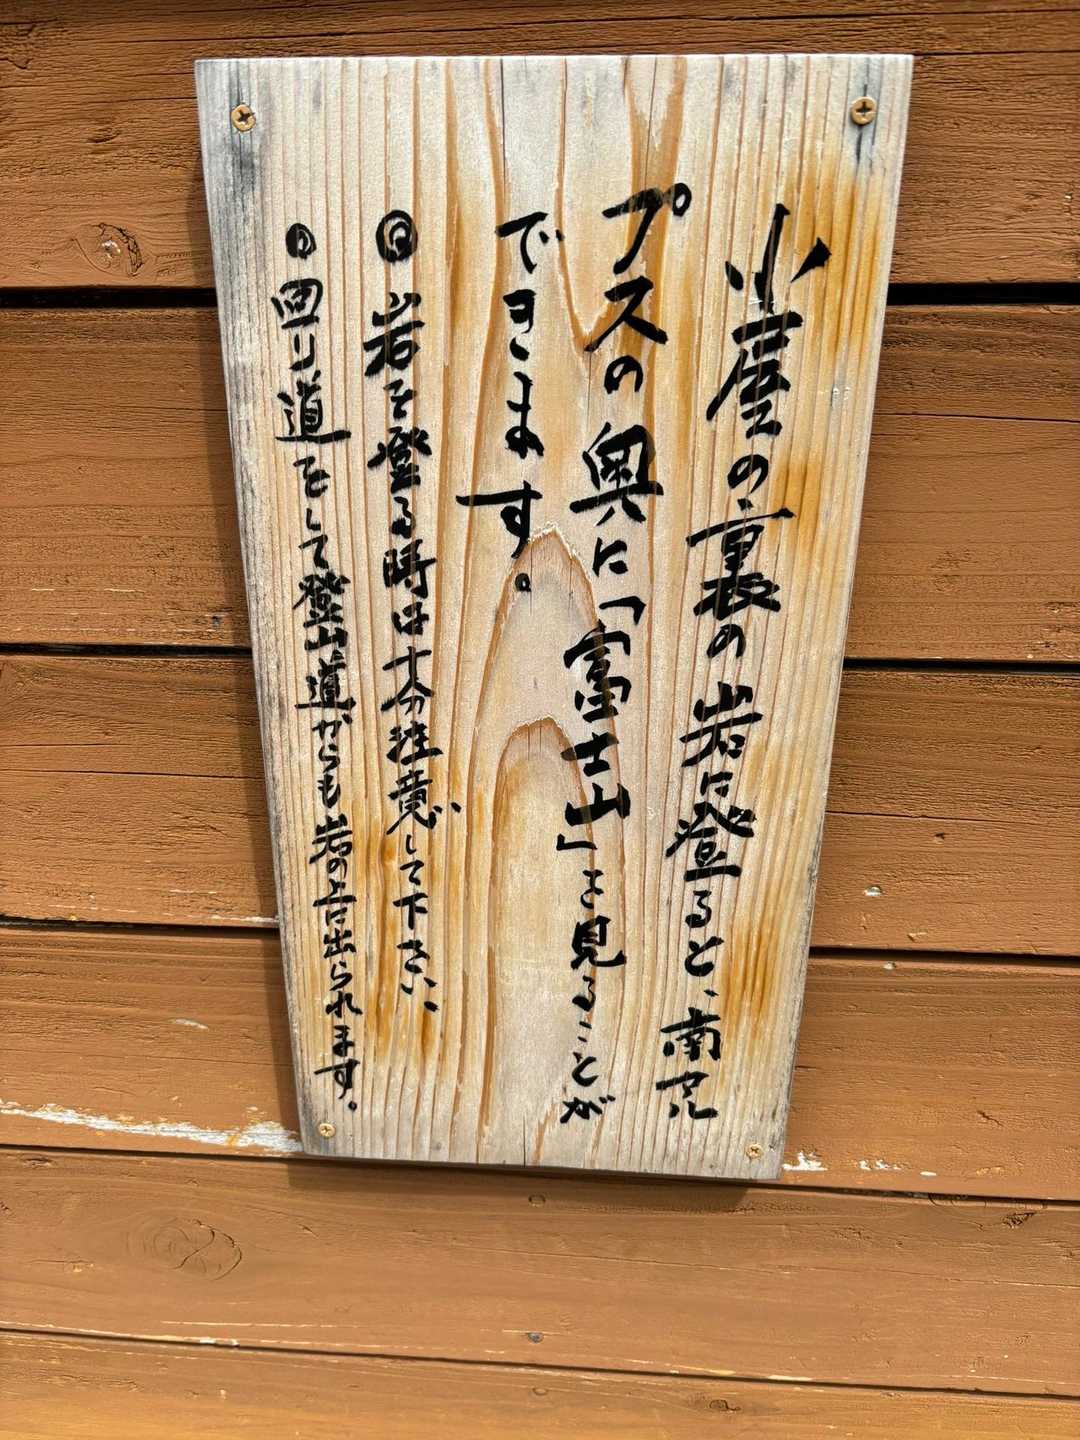 小屋の裏の岩に登ると、南アル
プスの奥に「富士山」を見ることが
できます。
◎岩を登る時は十分注意して下さい、
●回り道をして登山道からも岩の上に出られます。